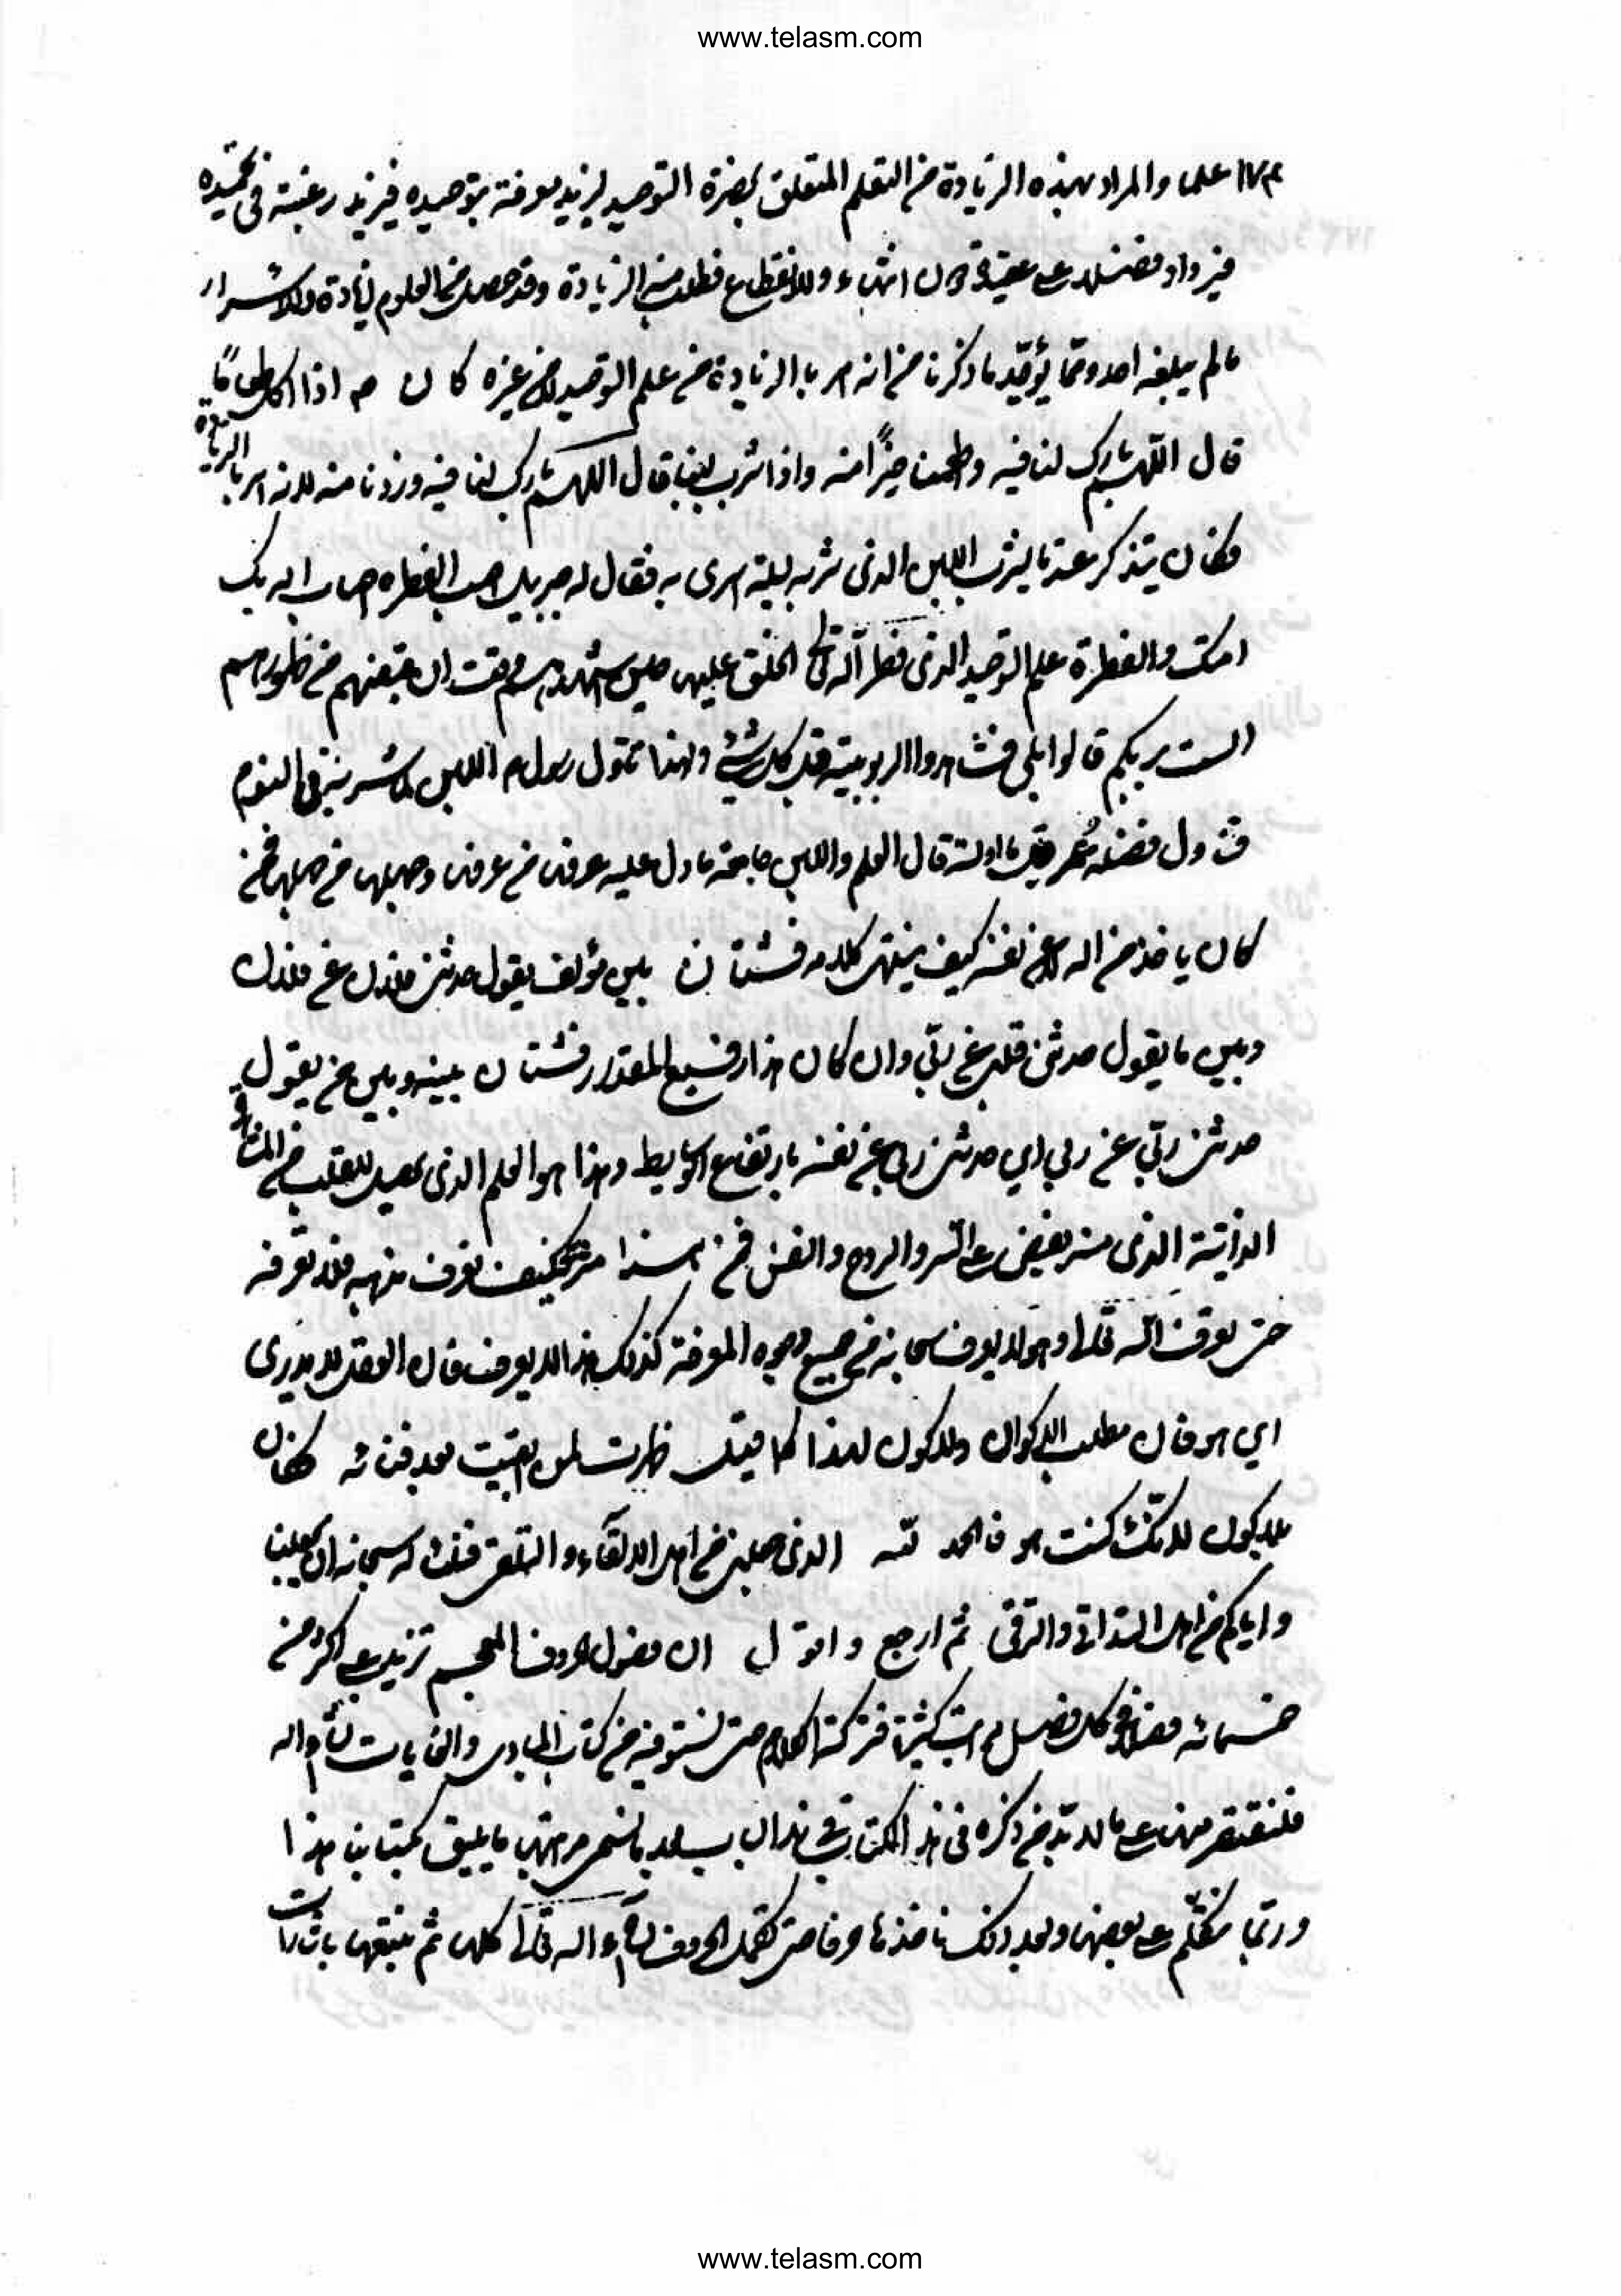 www.telasm.com
١٧٤ علما والمراد بهذه الزيادة من التعلم المتعلق بحضرة التوحيد ليزيد معرفة بتوحيده فيزيد رغبة في تحميده
فيزداد فضلا على من غير انتهاء ولا انقطاع فطلب من الزيادة وقد حصل من العلوم والاسرار
مالم يبلغه احد ومما يؤيد ما ذكرنا من انه امر بالزيادة من علم التوحيد لا من غيره كان م اذا اكل طعاما
قال اللهم بارك لنا فيه واطعمنا خيرا منه واذا شرب لبنا قال اللهم بارك لنا فيه وزدنا منه لانه امر بالزيادة
فكان يتذكر عندما يشرب اللبن الذي شربه ليلة اسرى به فقال له جبريل اصبت الفطرة اصاب الله بك
امتك والفطرة علم التوحيد الذي فطر الله تعالى الخلق عليها حين اشهدهم وقت ان قبضهم من ظهورهم
الست بربكم قالوا بلى فشاهدوا الربوبية قبل كل شيء ولهذا تأول رسول م اللبن لما شربه في النوم
وناول فضله عمر قيل ما اولته قال العلم واللبن جامعة ما دل عليه عرفها من عرفها وجهلها من جهلها فمن
كان ياخذ من الله لا من نفسه كيف ينتهي كلامه فشتان بين مؤلف يقول حدثني فلان عن فلان
وبين ما يقول حدثني قلبي عن ربي وان كان هذا رفيع المقدار فشتان بينه وبين من يقول
حدثني ربي عن ربي اي حدثني ربي عن نفسه بارتفاع الوسايط وهذا هو العلم الذي يحصل للقلب من المشاهدة
الذاتية الذي منه يفيض على السر والروح والنفس فمن هذا مشربه كيف يعرف مذهبه فلا تعرفه
حتى تعرف الله تعالى وهو لا يعرف سبحانه من جميع وجوه المعرفة كذلك هذا لا يعرف فان العقل لا يدري
اي هو فان مطلب الاكوان ولا كون لهذا كما قيل ظهرت لمن ابقيت بعد فنائه فكان
بلا كون لانك كنت هو فالحمد لله الذي جعلني من اهل الالقاء والتلقي فنسأله سبحانه ان يجعلنا
واياكم من اهل التداني والترقي ثم ارجع واقول ان فصول حروف المعجم تزيد على اكثر من
خمسمائة فصل وفي كل فصل مراتب كثيرة فتركنا الكلام حتى نستوفيه من كتاب المبادي والغايات ان شاء الله
فلنقتصر منها على ما لا بد من ذكره في هذا الكتاب بعد ما نسمي من مراتبها ما يليق بكتابنا هذا
وربما نتكلم على بعضها وبعد ذلك ناخذها حرفا حرفا حتى تكمل الحروف ان شاء الله تعالى كلها ثم نتبعها باشارات
www.telasm.com